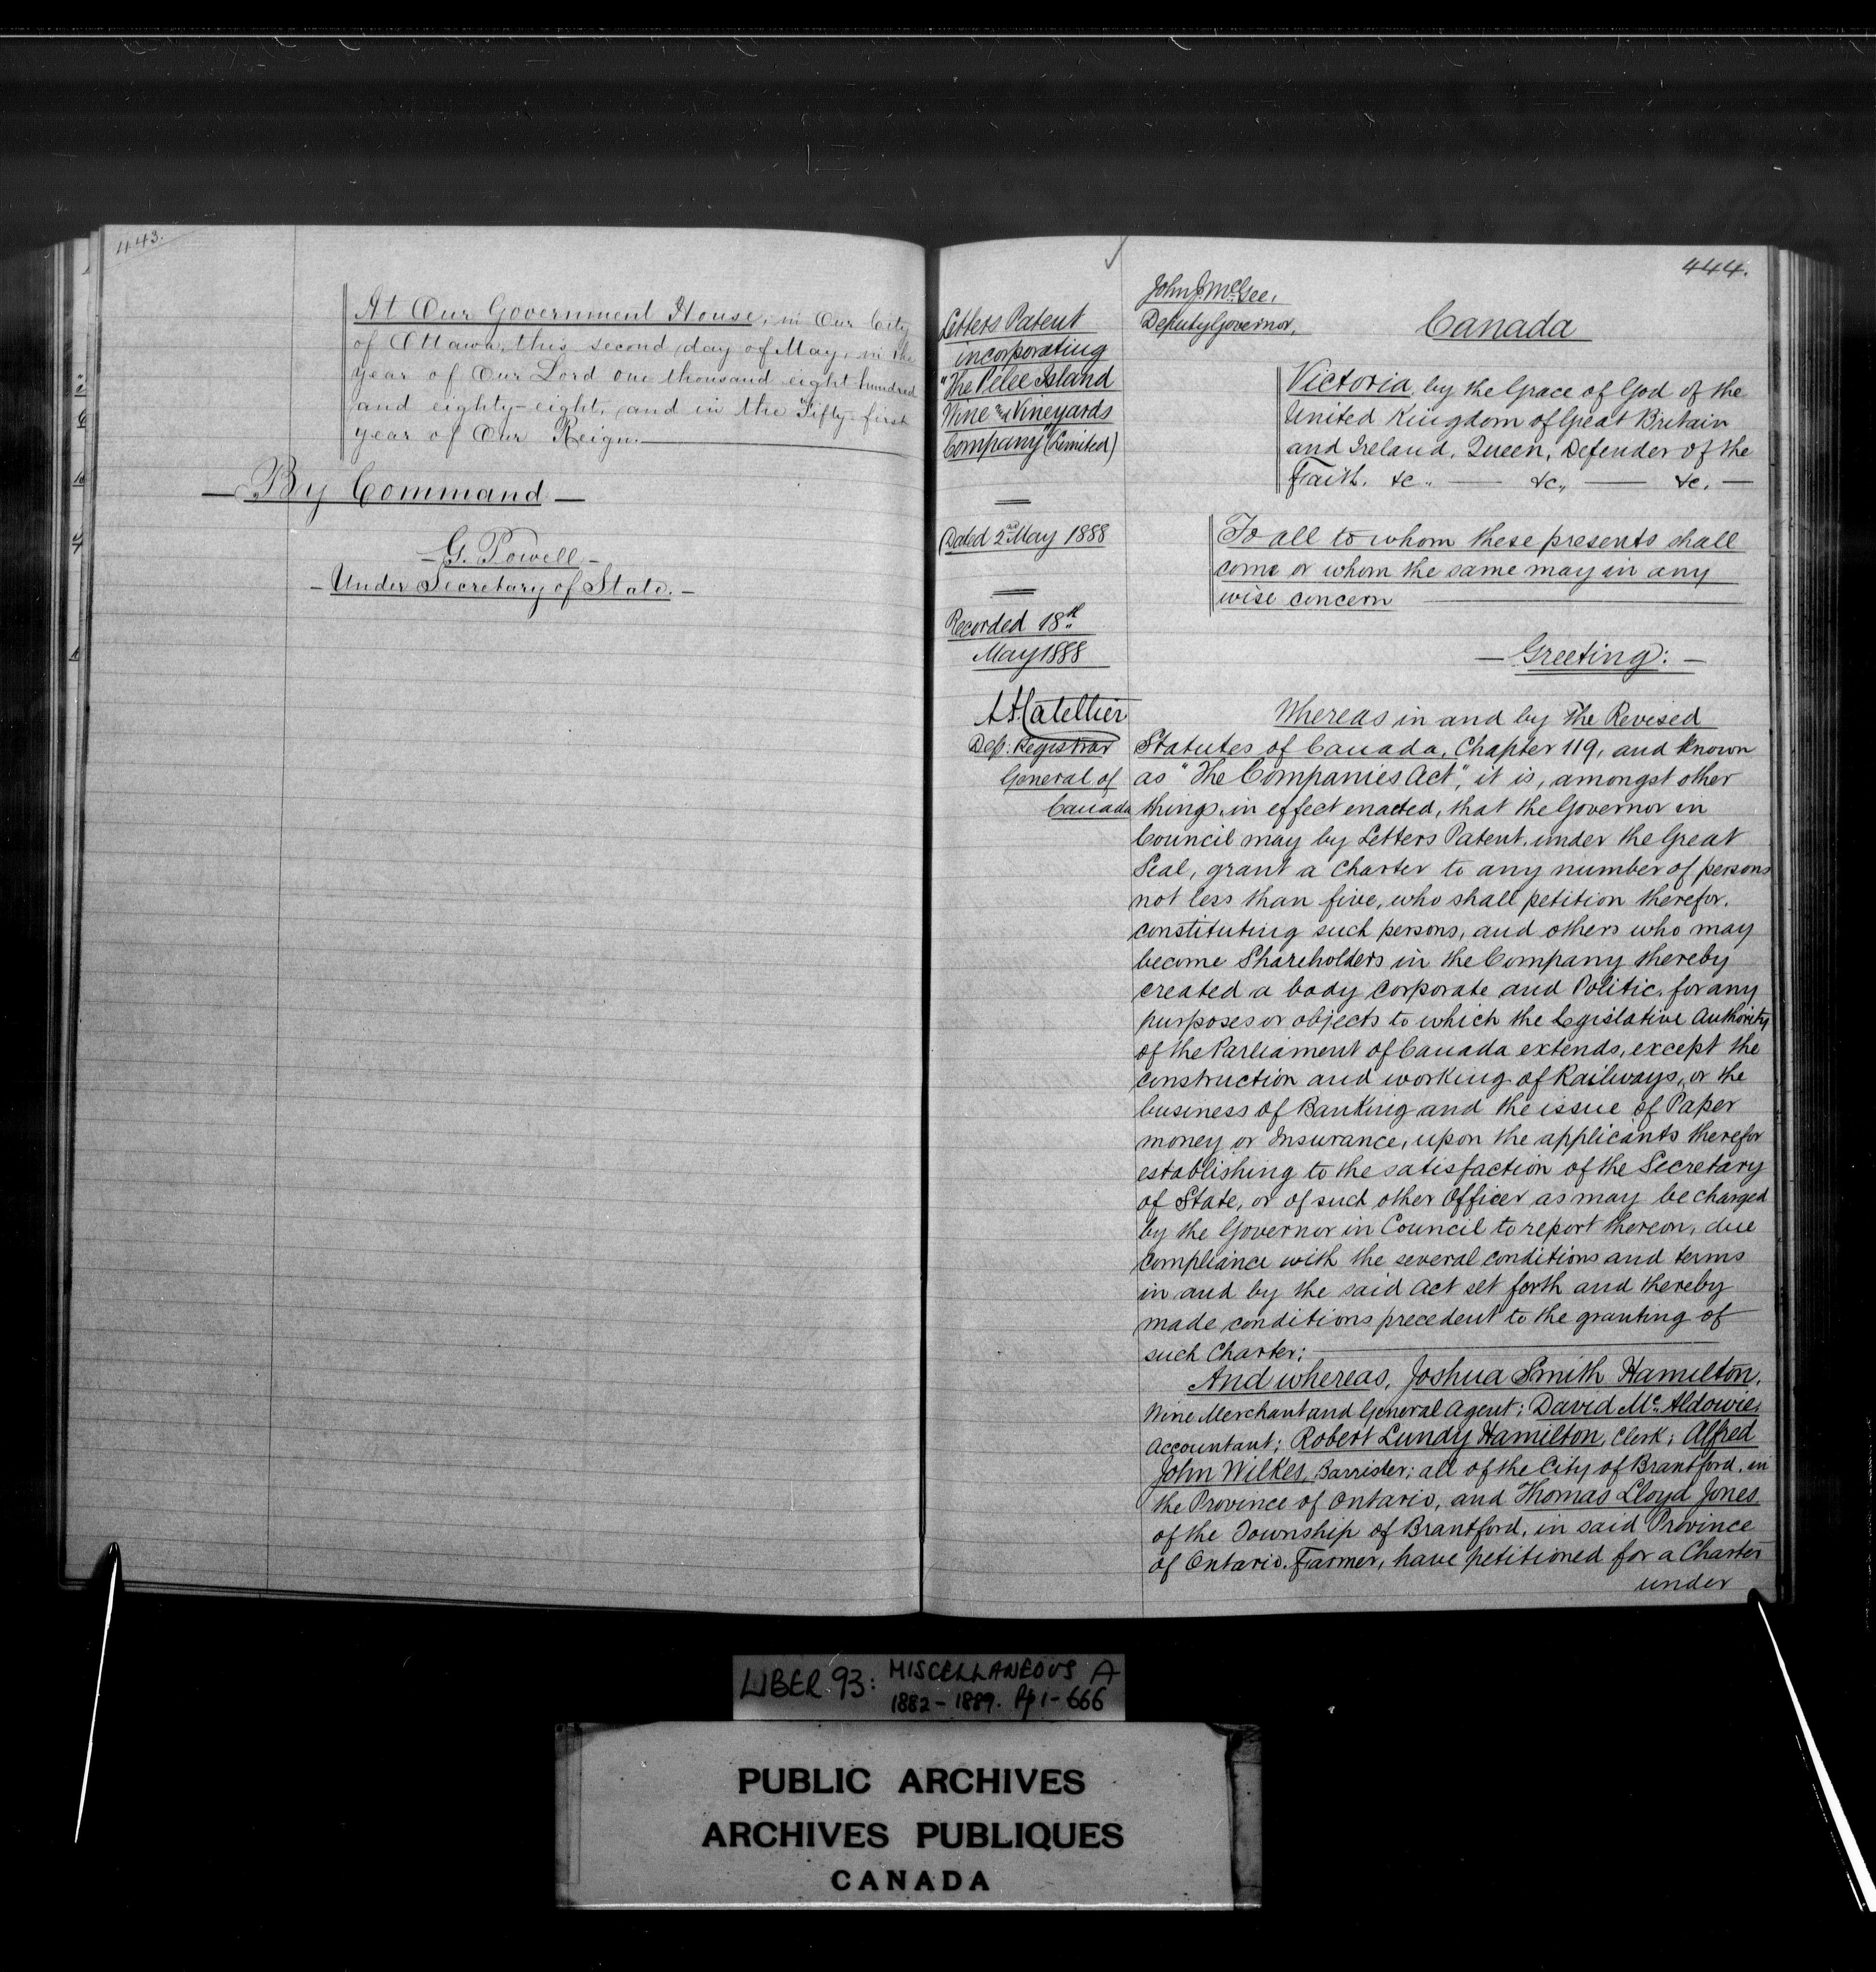 443.
At Our Government House, in Our City
of Ottawa, this second day of May, in the
year of Our Lord one thousand eight hundred
and eighty-eight, and in the Fifty-first
year of Our Reign.
— By Command —
- G. Powell -
- Under Secretary of State. -
444.
Letters Patent
incorporating
"The Pelee Island
Wine and Vineyards
Company" (Limited)
Dated 2nd May 1888
Recorded 18th
May 1888
Dep: Registrar
General of
Canada
John J. McGee,
Deputy Governor,
Canada
Victoria, by the Grace of God of the
United Kingdom of Great Britain
and Ireland, Queen, Defender of the
Faith. &c., — &c., — &c. —
To all to whom these presents shall
come or whom the same may in any
wise concern
— Greeting: —
Whereas in and by The Revised
Statutes of Canada, Chapter 119, and known
as "The Companies Act", it is, amongst other
things, in effect enacted, that the Governor in
Council may by Letters Patent, under the Great
Seal, grant a Charter to any number of persons
not less than five, who shall petition therefor,
constituting such persons, and others who may
become Shareholders in the Company thereby
created a body Corporate and Politic, for any
purposes or objects to which the Legislative Authority
of the Parliament of Canada extends, except the
construction and working of Railways, or the
business of Banking and the issue of Paper
money or Insurance, upon the applicants therefor
establishing to the satisfaction of the Secretary
of State, or of such other Officer as may be charged
by the Governor in Council to report thereon, due
compliance with the several conditions and terms
in and by the said Act set forth and thereby
made conditions precedent to the granting of
such Charter;
And whereas, Joshua Smith Hamilton,
Wine Merchant and General Agent; David Mc. Aldowie,
Accountant; Robert Lundy Hamilton, Clerk; Alfred
John Wilkes, Barrister; all of the City of Brantford, in
the Province of Ontario, and Thomas Lloyd Jones
of the Township of Brantford, in said Province
of Ontario, Farmer, have petitioned for a Charter
under
LIBER 93: MISCELLANEOUS A
1882-1889. Pp 1-666
PUBLIC ARCHIVES
ARCHIVES PUBLIQUES
CANADA